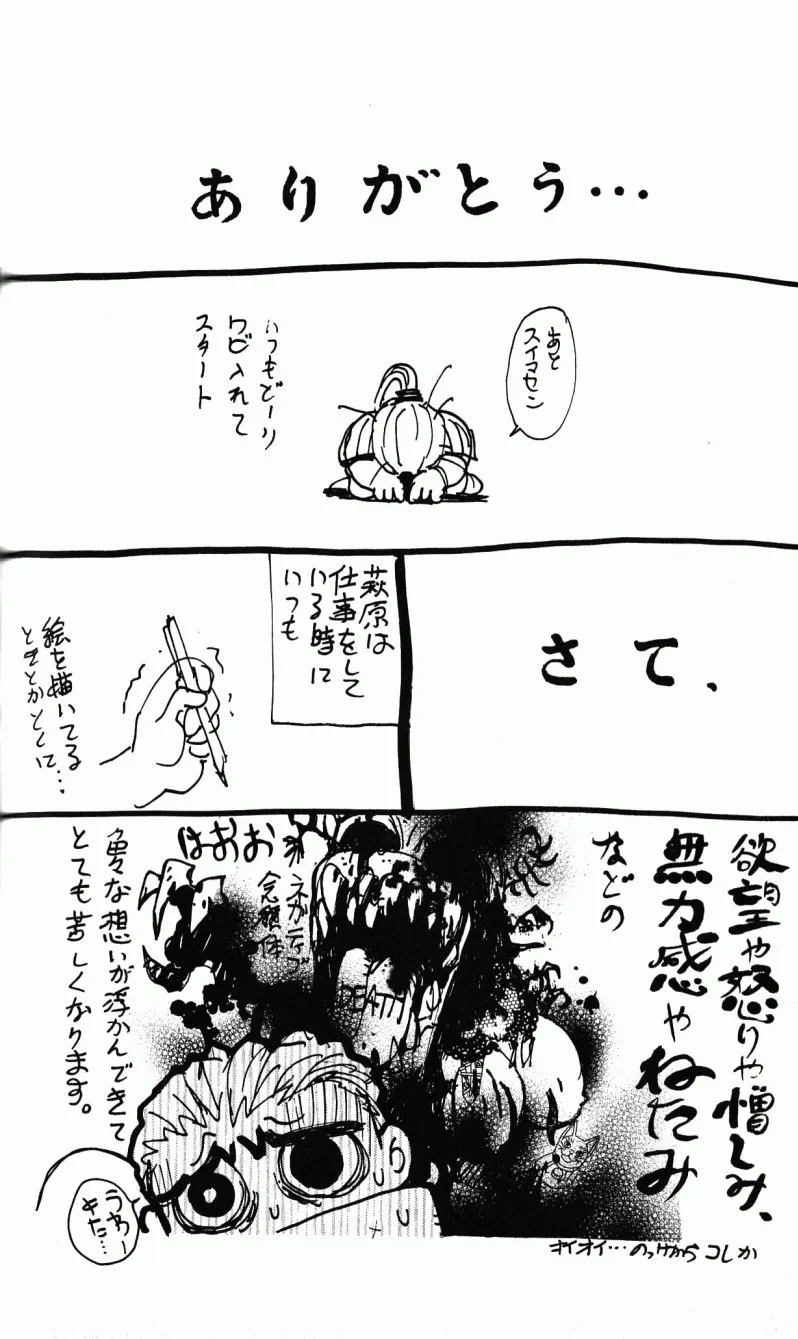 ありがとう…
あと
スイマセン
いつもどーり
ワビ入れて
スタート
さて、
萩原は
仕事をして
いる時に
いつも
絵を描いてる
ときとかとくに…
欲望や怒りや憎しみ、
無力感やねたみ
などの
ネガティブ
念積体
DEATH
おおおは
色々な想いが浮かんできて
とても苦しくなります。
うわー
きた…
オイオイ…のっけからコレか